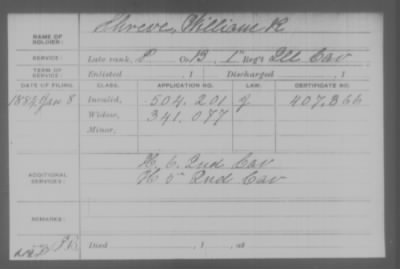 NAME OF SOLDIER: Shreve, William R
SERVICE: Late rank, P. Co. B, 1" Reg't Ill Cav
TERM OF SERVICE: Enlisted , 1 Discharged , 1
DATE OF FILING. CLASS. APPLICATION NO. LAW. CERTIFICATE NO.
1884 Jan 8 Invalid, 504.201 407.366
Widow, 341.077
Minor,
ADDITIONAL SERVICES: H, 6. 2nd Cav
H 5" 2nd Cav
REMARKS:
Died , 1 , at